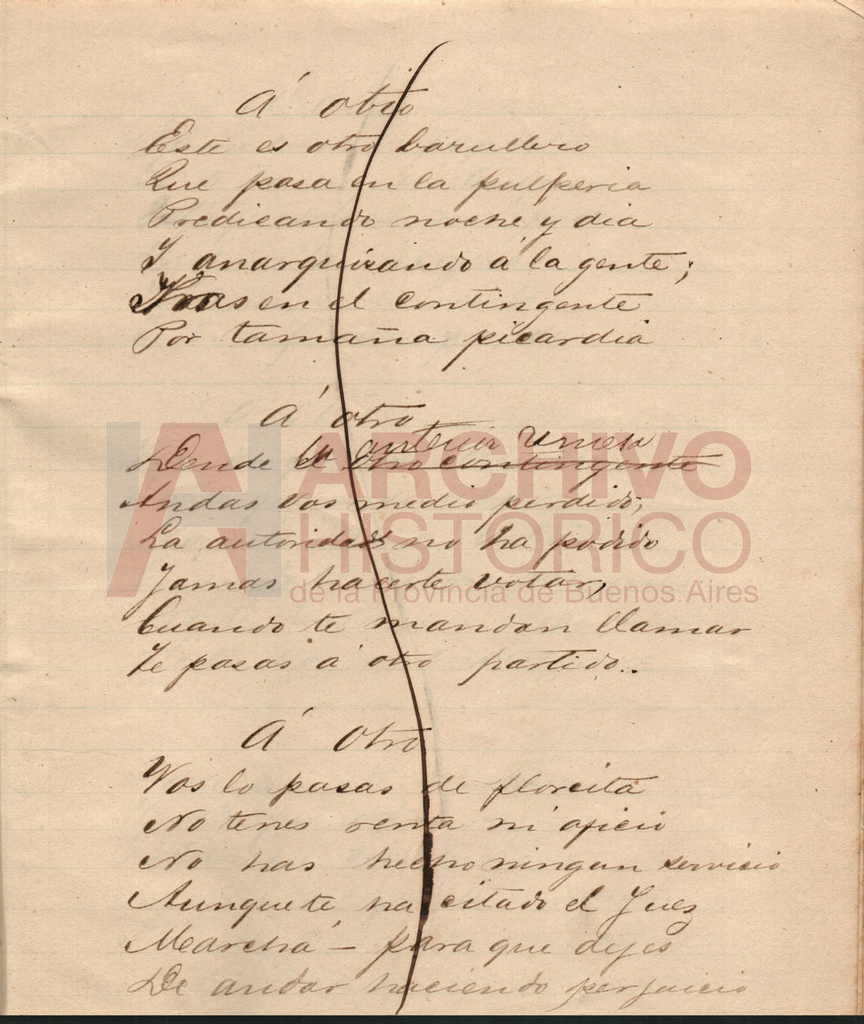 Á otro
Este es otro barullero
Que pasa en la pulperia
Predicando noche y dia
Y anarquizando á la gente;
Iras en el contingente
Por tamaña picardia
Á otro
la anterior
Dende el otro contingente
Andas vos medio perdido,
La autoridad no ha podido
Jamas hacerte votar,
Cuando te mandan llamar
Te pasas á otro partido..
Á Otro
Vos lo pasas de florcita
No tenes renta ni oficio
No has hecho ningun servicio
Aunque te ha citado el Juez
Marchá – para que dejes
De andar haciendo perjuicio
ARCHIVO
HISTÓRICO
de la Provincia de Buenos Aires